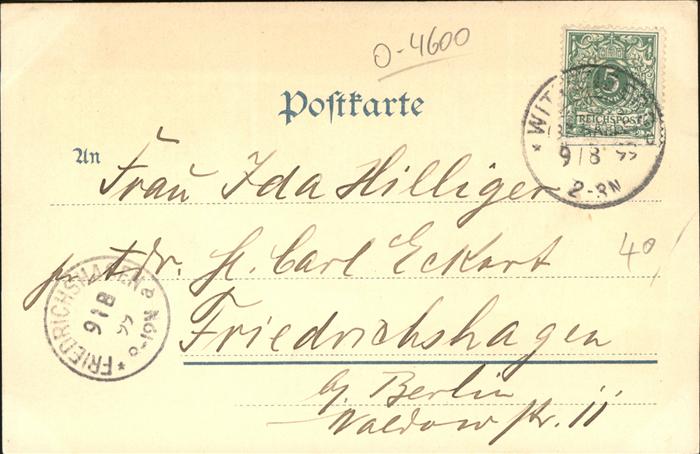 0-4600
5
REICHSPOST
WITTENBERG
9/8 99
2-3N
Postkarte
An
Frau Ida Hilliger
Adr. H. Carl Eckart
40
Friedrichshagen
b/ Berlin
Waldow str. 11
FRIEDRICHSHAGEN a
9 / 8
99